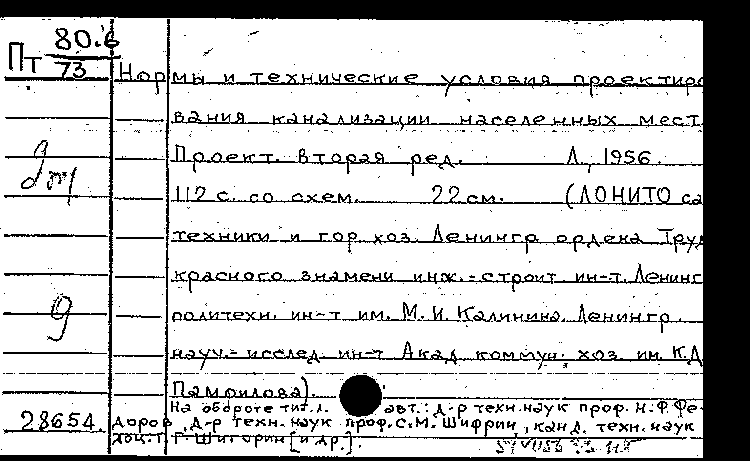 Пт 80.6
73
Нормы и технические условия проектиро
вания канализации населенных мест.
Проект. Вторая ред. Л., 1956.
112 с. со схем. 22 см. (ЛОНИТО са
техники и гор. хоз. Ленингр. ордена Труд
красного знамени инж.-строит. ин-т. Ленинг
политехн. ин-т им. М.И. Калинина. Ленингр.
науч.-исслед. ин-т Акад. коммун. хоз. им. К.Д.
Памфилова).
На обороте тит. л. авт.: д-р техн. наук проф. Н.Ф. Фе-
28654. доров, д-р техн. наук проф. С.М. Шифрин, канд. техн. наук
доц. Г.Г. Шигорин [и др.].